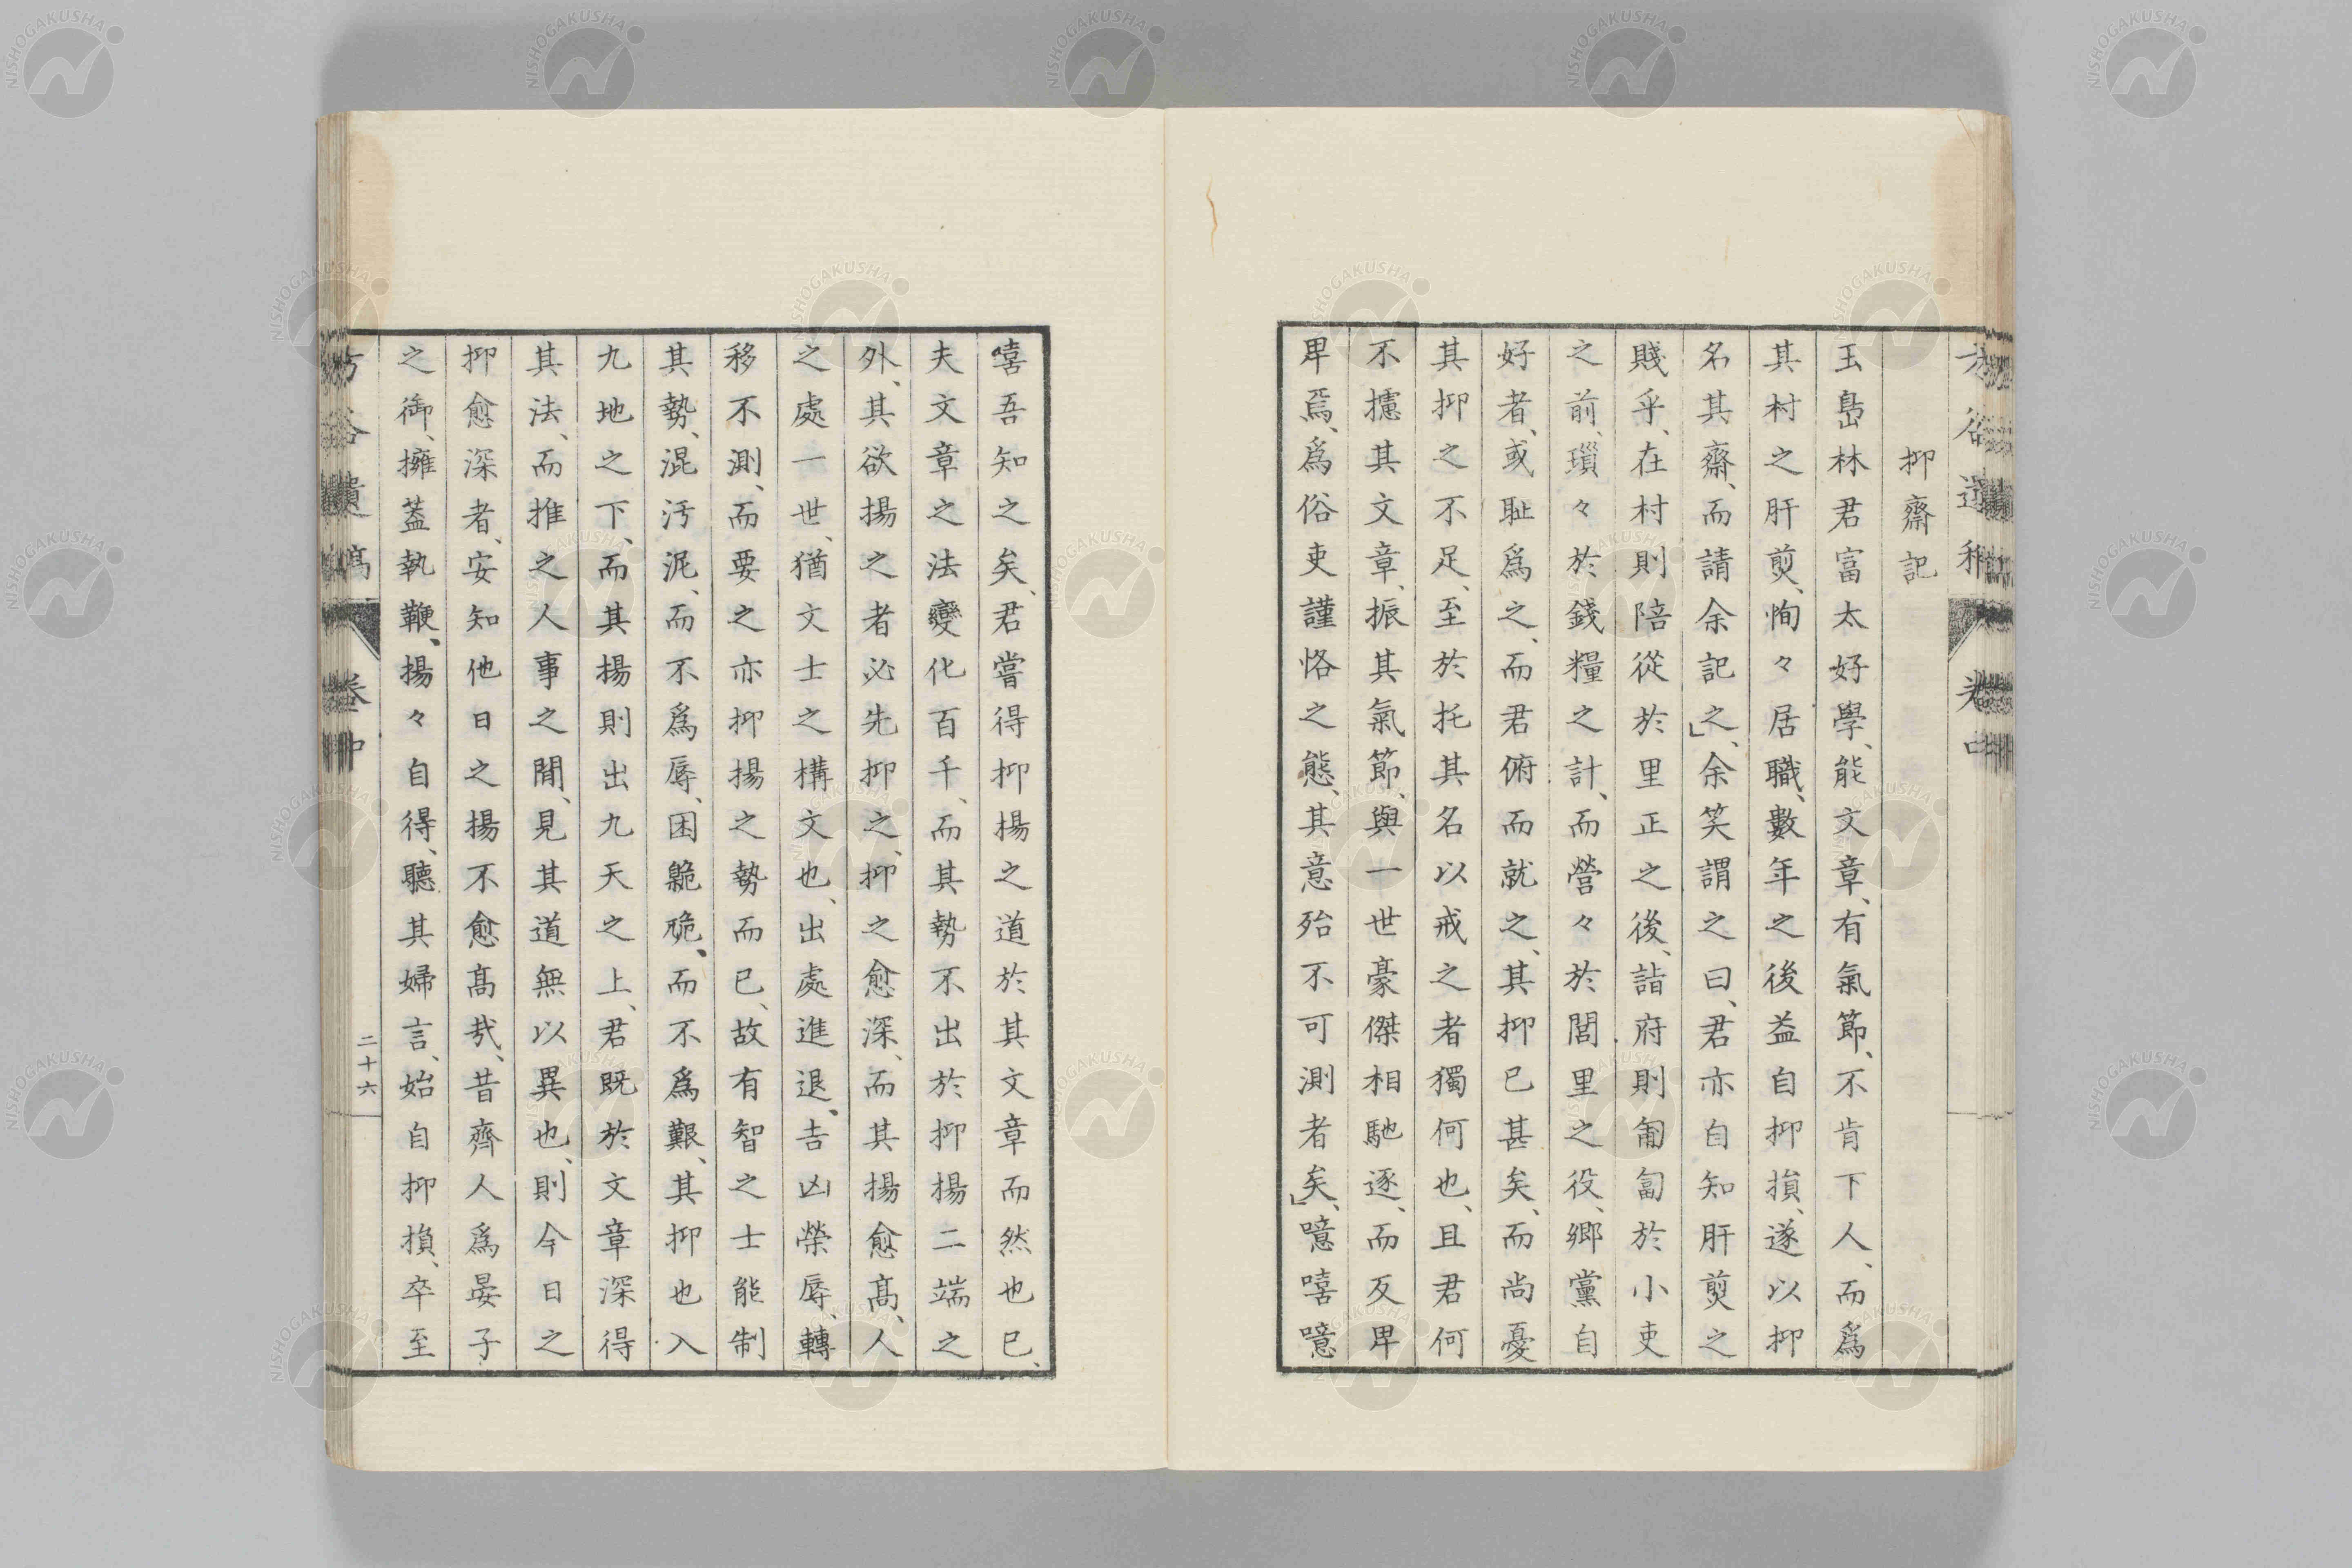 抑齋記
玉島林君富太好學、能文章、有氣節、不肯下人、而爲
其村之肝煎、恂々居職、數年之後益自抑損、遂以抑
名其齋、而請余記之、」余笑謂之曰、君亦自知肝煎之
賤乎、在村則陪從於里正之後、詣府則匍匐於小吏
之前、瑣々於錢糧之計、而營々於閭里之役、鄉黨自
好者、或耻爲之、而君俯而就之、其抑已甚矣、而尚憂
其抑之不足、至於托其名以戒之者獨何也、且君何
不攄其文章、振其氣節、與一世豪傑相馳逐、而反卑
卑焉、爲俗吏謹恪之態、其意殆不可測者矣、」噫嘻噫
嘻吾知之矣、君嘗得抑揚之道於其文章而然也已、
夫文章之法變化百千、而其勢不出於抑揚二端之
外、其欲揚之者必先抑之、抑之愈深、而其揚愈髙、人
之處一世、猶文士之構文也、出處進退、吉凶榮辱、轉
移不測、而要之亦抑揚之勢而已、故有智之士能制
其勢、混汚泥、而不爲辱、困臲卼、而不爲艱、其抑也入
九地之下、而其揚則出九天之上、君既於文章深得
其法、而推之人事之間、見其道無以異也、則今日之
抑愈深者、安知他日之揚不愈髙哉、昔齊人爲晏子
之御、擁蓋執鞭、揚々自得、聽其婦言、始自抑損、卒至
卷中
二十六
NISHOGAKUSHA